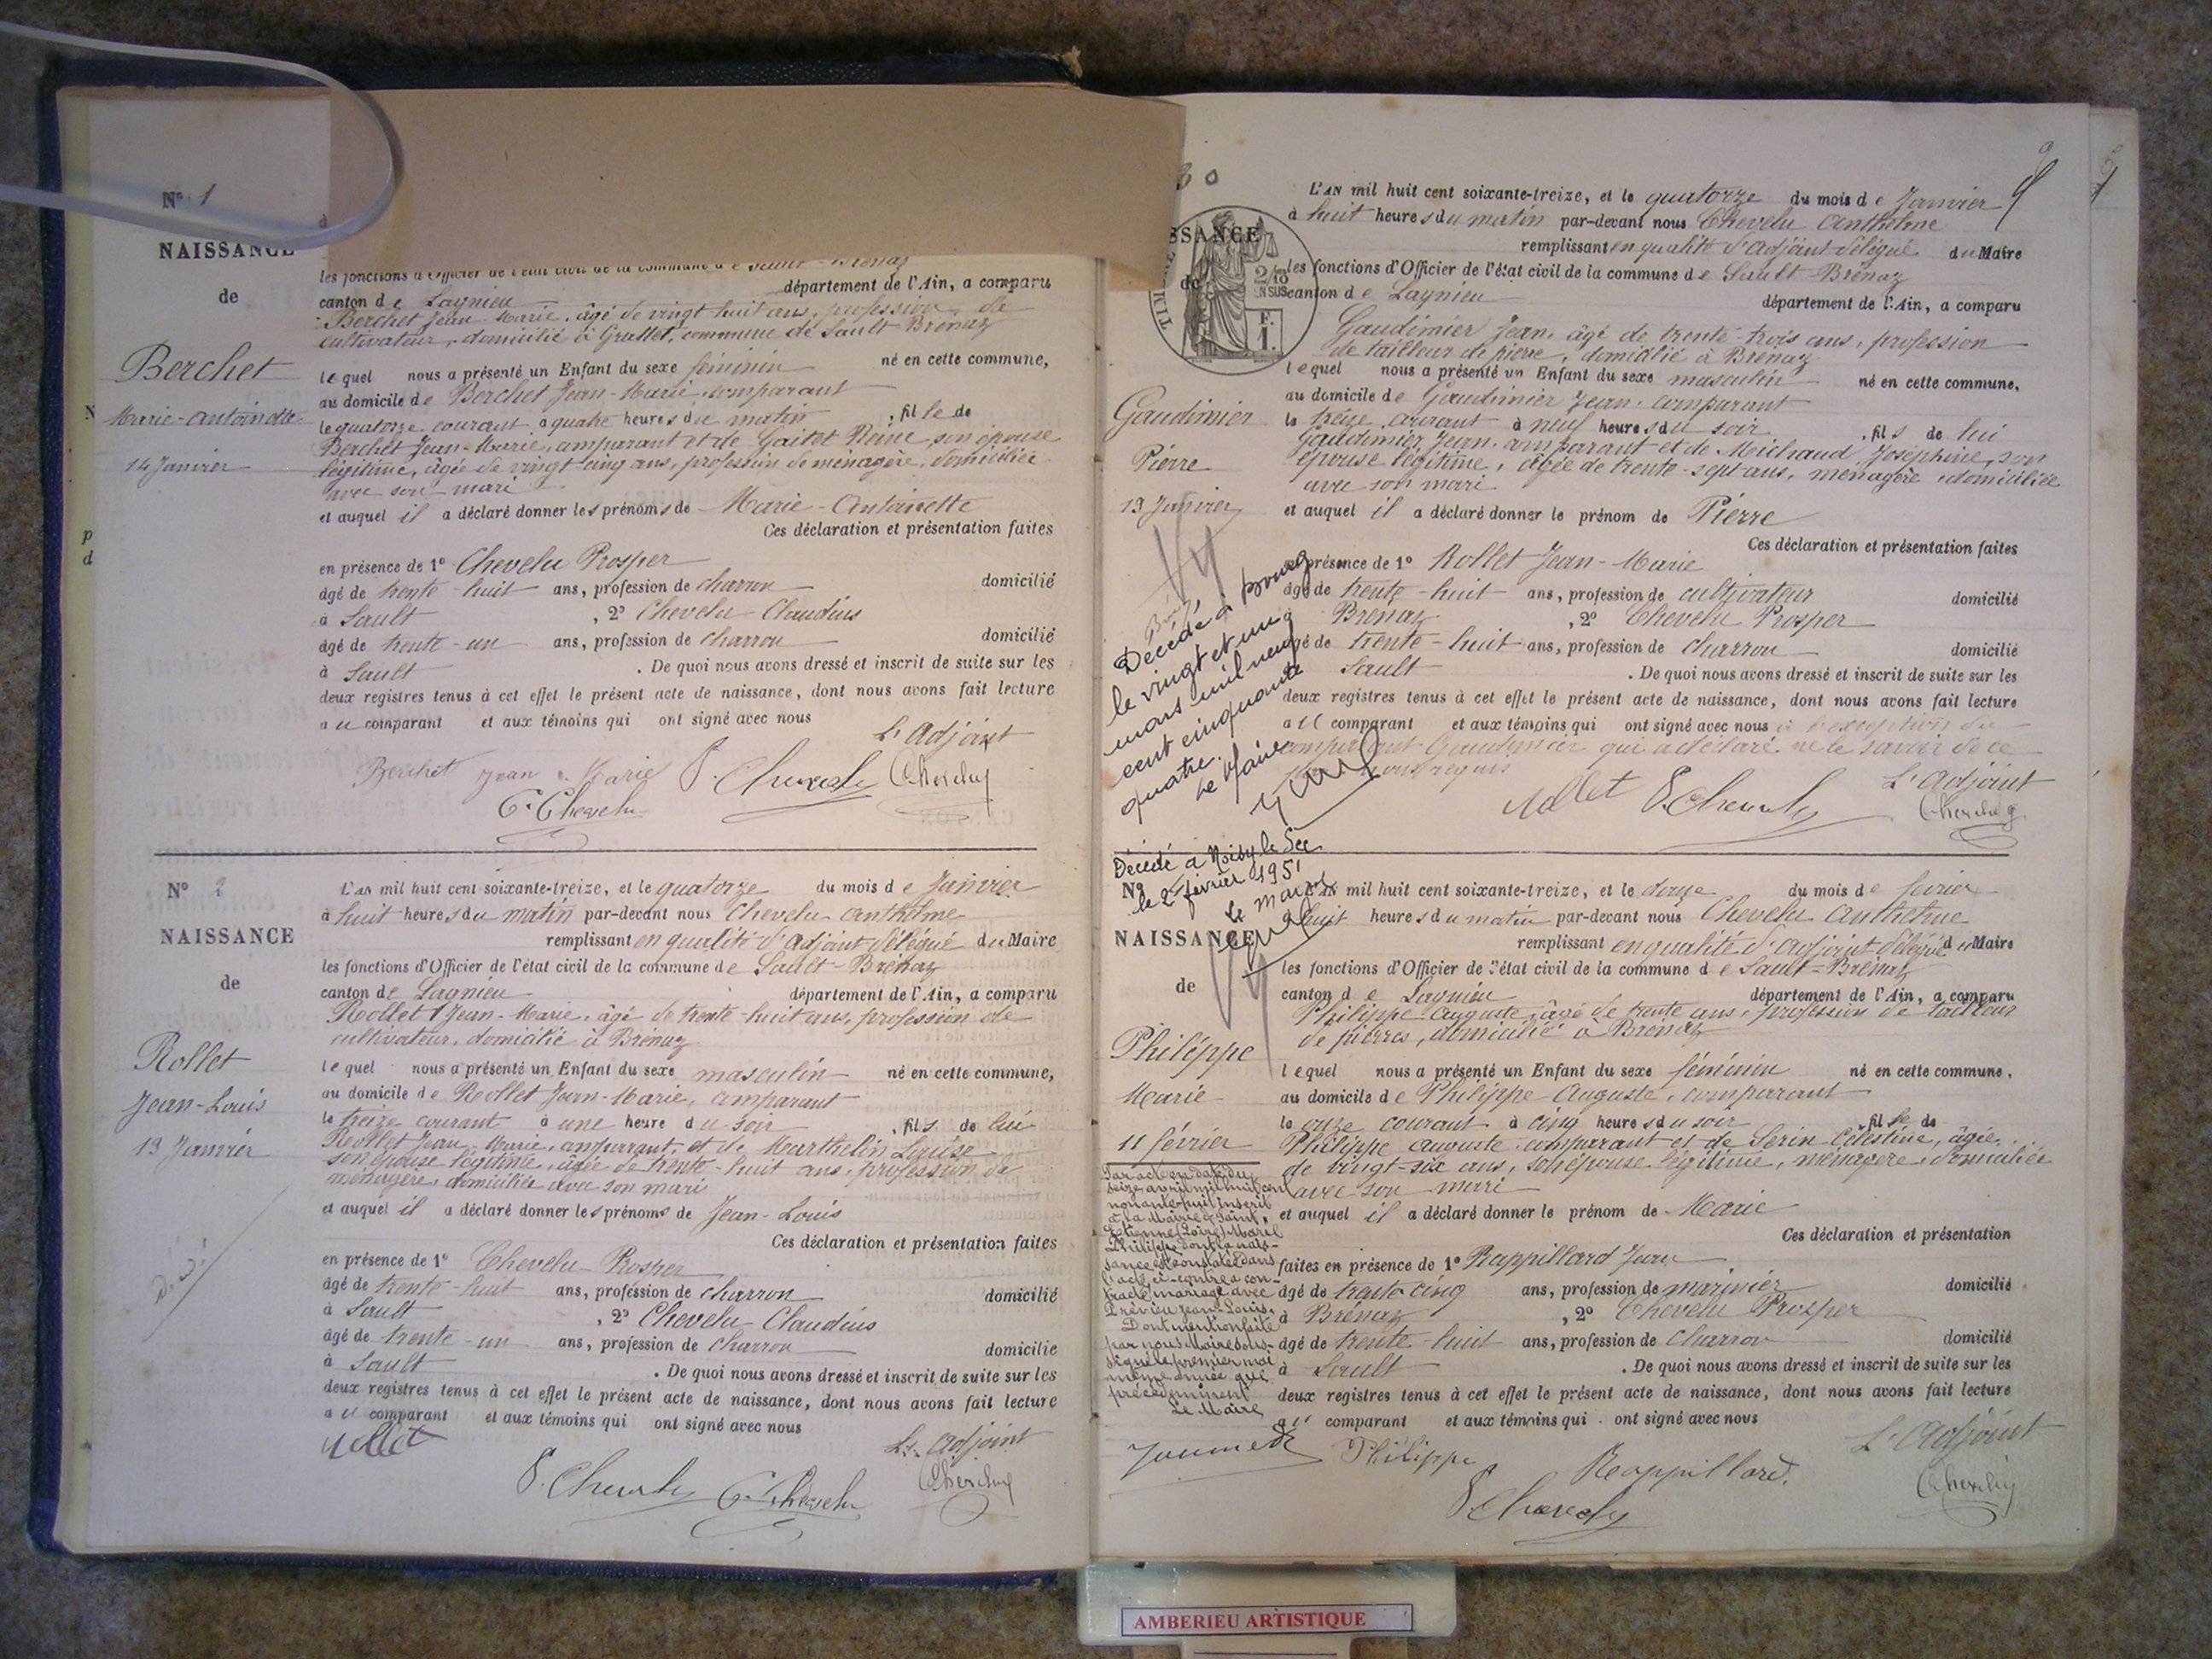 Nº 1
NAISSANCE
de
Berchet
Marie-Antoinette
14 Janvier
à
les fonctions d'Officier de l'état civil de la commune de Sault-Brénaz
canton de Lagnieu département de l'Ain, a comparu
Berchet Jean-Marie, âgé de vingt huit ans, profession de
cultivateur, domicilié à commune de Sault Brénaz
lequel nous a présenté un Enfant du sexe féminin né en cette commune,
au domicile de Berchet Jean-Marie, comparant
le quatorze courant à quatre heures du matin, fille de
Berchet Jean-Marie, comparant et de Reine, son épouse
légitime, âgée de vingt cinq ans, profession de ménagère, domiciliée
avec son mari
et auquel il a déclaré donner les prénoms de Marie-Antoinette
Ces déclaration et présentation faites
en présence de 1º Chevelu Prosper
âgé de trente-huit ans, profession de charron domicilié
à Sault, 2º Chevelu Claudius
âgé de trente-un ans, profession de charron domicilié
à Sault. De quoi nous avons dressé et inscrit de suite sur les
deux registres tenus à cet effet le présent acte de naissance, dont nous avons fait lecture
au comparant et aux témoins qui ont signé avec nous
L'Adjoint
Berchet Jean Marie P. Chevelu Chevelu
C. Chevelu
Nº 2
NAISSANCE
de
Rollet
Jean-Louis
13 Janvier
L'an mil huit cent soixante-treize, et le quatorze du mois de Janvier
à huit heures du matin par-devant nous Chevelu Anthelme
remplissant en qualité d'Adjoint délégué du Maire
les fonctions d'Officier de l'état civil de la commune de Sault-Brénaz
canton de Lagnieu département de l'Ain, a comparu
Rollet Jean-Marie, âgé de trente-huit ans, profession de
cultivateur, domicilié à Brénaz
lequel nous a présenté un Enfant du sexe masculin né en cette commune,
au domicile de Rollet Jean-Marie, comparant
le treize courant à une heure du soir, fils de lui
Rollet Jean-Marie, comparant, et de Marthelin Louise
son épouse légitime, âgée de trente-huit ans, profession de
ménagère, domiciliée avec son mari
et auquel il a déclaré donner les prénoms de Jean-Louis
Ces déclaration et présentation faites
en présence de 1º Chevelu Prosper
âgé de trente-huit ans, profession de charron domicilié
à Sault, 2º Chevelu Claudius
âgé de trente-un ans, profession de charron domicilié
à Sault. De quoi nous avons dressé et inscrit de suite sur les
deux registres tenus à cet effet le présent acte de naissance, dont nous avons fait lecture
au comparant et aux témoins qui ont signé avec nous
Rollet L'Adjoint
P. Chevelu C. Chevelu Chevelu
SSANCE
de
Gaudimier
Pierre
13 Janvier
L'an mil huit cent soixante-treize, et le quatorze du mois de Janvier
à huit heures du matin par-devant nous Chevelu Anthelme
remplissant en qualité d'Adjoint délégué du Maire
les fonctions d'Officier de l'état civil de la commune de Sault-Brénaz
canton de Lagnieu département de l'Ain, a comparu
Gaudimier Jean, âgé de trente-trois ans, profession
de tailleur de pierre, domicilié à Brénaz
lequel nous a présenté un Enfant du sexe masculin né en cette commune,
au domicile de Gaudimier Jean, comparant
le treize courant à neuf heures du soir, fils de lui
Gaudimier Jean, comparant et de Michaud Joséphine, son
épouse légitime, âgée de trente-sept ans, ménagère domiciliée
avec son mari
et auquel il a déclaré donner le prénom de Pierre
Ces déclaration et présentation faites
en présence de 1º Rollet Jean-Marie
âgé de trente-huit ans, profession de cultivateur domicilié
à Brénaz, 2º Chevelu Prosper
âgé de trente-huit ans, profession de charron domicilié
à Sault. De quoi nous avons dressé et inscrit de suite sur les
deux registres tenus à cet effet le présent acte de naissance, dont nous avons fait lecture
au comparant et aux témoins qui ont signé avec nous à l'exception du
comparant Gaudimier qui a déclaré ne le savoir de ce
requis
Rollet P. Chevelu L'Adjoint
Chevelu
Décédé à Bourg
le vingt et un
mars mil neuf
cent cinquante
quatre.
Le Maire
Décédé à Noisy le Sec
le 2 février 1951
Le Maire
Nº
NAISSANCE
de
Philippe
Marie
11 février
L'an mil huit cent soixante-treize, et le douze du mois de février
à huit heures du matin par-devant nous Chevelu Anthelme
remplissant en qualité d'adjoint délégué du Maire
les fonctions d'Officier de l'état civil de la commune de Sault-Brénaz
canton de Lagnieu département de l'Ain, a comparu
Philippe Auguste, âgé de trente ans, profession de tailleur
de pierres, domicilié à Brénaz
lequel nous a présenté un Enfant du sexe féminin né en cette commune,
au domicile de Philippe Auguste, comparant
le onze courant à cinq heures du soir, fille de
Philippe Auguste comparant et de Serin Célestine, âgée
de vingt-six ans, son épouse légitime, ménagère, domiciliée
avec son mari
et auquel il a déclaré donner le prénom de Marie
Ces déclaration et présentation
faites en présence de 1º Rappillard Jean
âgé de trente cinq ans, profession de marinier domicilié
à Brénaz, 2º Chevelu Prosper
âgé de trente-huit ans, profession de charron domicilié
à Sault. De quoi nous avons dressé et inscrit de suite sur les
deux registres tenus à cet effet le présent acte de naissance, dont nous avons fait lecture
au comparant et aux témoins qui ont signé avec nous
L'Adjoint
Philippe Rappillard. Chevelu
P. Chevelu
Par acte en date du
seize avril mil huit cent
nonante-huit inscrit
à la Mairie de Saint-
Etienne (Loire) Marie
Philippe dont la nais-
sance est constatée dans
l'acte ci-contre a con-
tracté mariage avec
Prévieu Jean-Louis.
Dont mention faite
par nous Maire sous-
signé le premier mai
même année que
précédemment
Le Maire
AMBERIEU ARTISTIQUE